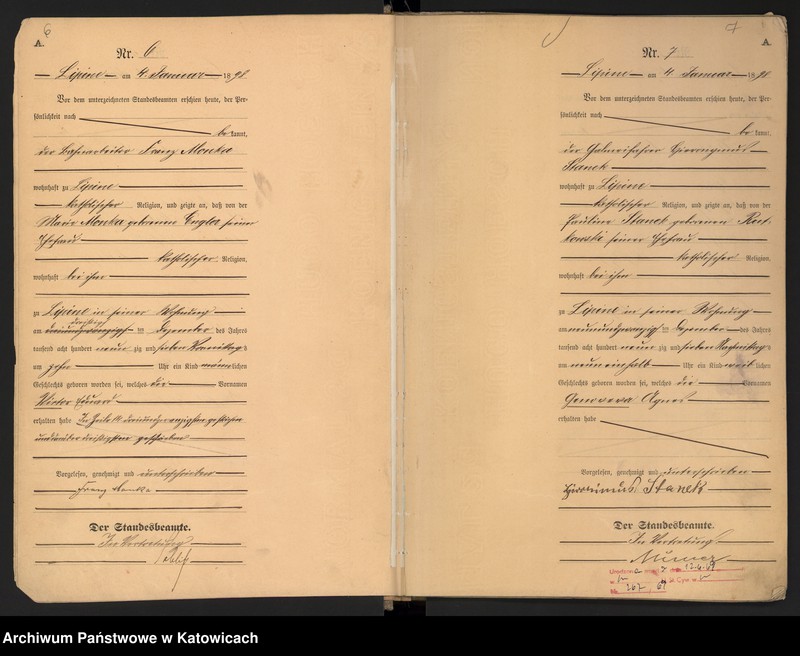 6
A.
Nr. 6
Lipine am 4 Januar 1898
Vor dem unterzeichneten Standesbeamten erschien heute, der Per-
sönlichkeit nach
be kannt,
der Franz Monka
wohnhaft zu Lipine
katholischer Religion, und zeigte an, daß von der
Marie Monka geborenen Engler seiner
Ehefrau
katholischer Religion,
wohnhaft bei ihm
zu Lipine in seiner Wohnung
dreißig
am ten Dezember des Jahres
tausend acht hundert neun zig und sieben Vormittags
um zehn Uhr ein Kind männlichen
Geschlechts geboren worden sei, welches die Vornamen
Victor Eduard
erhalten habe In Zeile 14
und darüber dreißigsten geschrieben
Vorgelesen, genehmigt und unterschrieben
Franz Monka
Der Standesbeamte.
In Vertretung
7
A.
Nr. 7
Lipine am 4 Januar 1898
Vor dem unterzeichneten Standesbeamten erschien heute, der Per-
sönlichkeit nach
be kannt,
der Hieronymus
Stanek
wohnhaft zu Lipine
katholischer Religion, und zeigte an, daß von der
Pauline Stanek geborenen
seiner Ehefrau
katholischer Religion,
wohnhaft bei ihm
zu Lipine in seiner Wohnung
am neunundzwanzigsten Dezember des Jahres
tausend acht hundert neun zig und sieben Nachmittags
um neun einhalb Uhr ein Kind weiblichen
Geschlechts geboren worden sei, welches die Vornamen
Genoveva Agnes
erhalten habe
Vorgelesen, genehmigt und unterschrieben
Stanek
Der Standesbeamte.
In Vertretung
Archiwum Państwowe w Katowicach